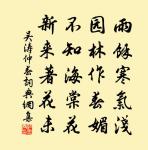 雨餘寒氣淺
园林作春媚
不知海棠花
新來著花未
吴涛仲春詞典網集